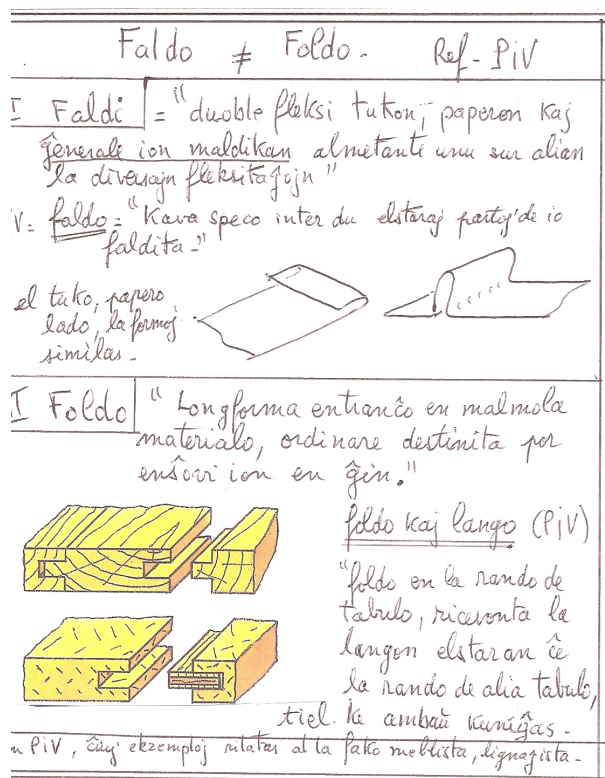 Faldo ≠ Foldo - Ref - PiV
I Faldi = "duoble fleksi tukon, paperon kaj
ĝenerale ion maldikan almetante unu sur alian
la diversajn fleksitaĵojn"
V = faldo = "Kava speco inter du elstaraj partoj de io
faldita -"
el tuko, papero
lado, la formoj
similas -
I Foldo "Longforma entranĉo en malmola
materialo, ordinare destinita por
enŝovi ion en ĝin."
foldo kaj lango (PiV)
"foldo en la rando de
tabulo, ricevonta la
langon elstaran ĉe
la rando de alia tabulo,
tiel ke ambaŭ kuniĝas -
n PiV, ĉiuj ekzemploj rilatas al la fako meblista, lignaĵista -